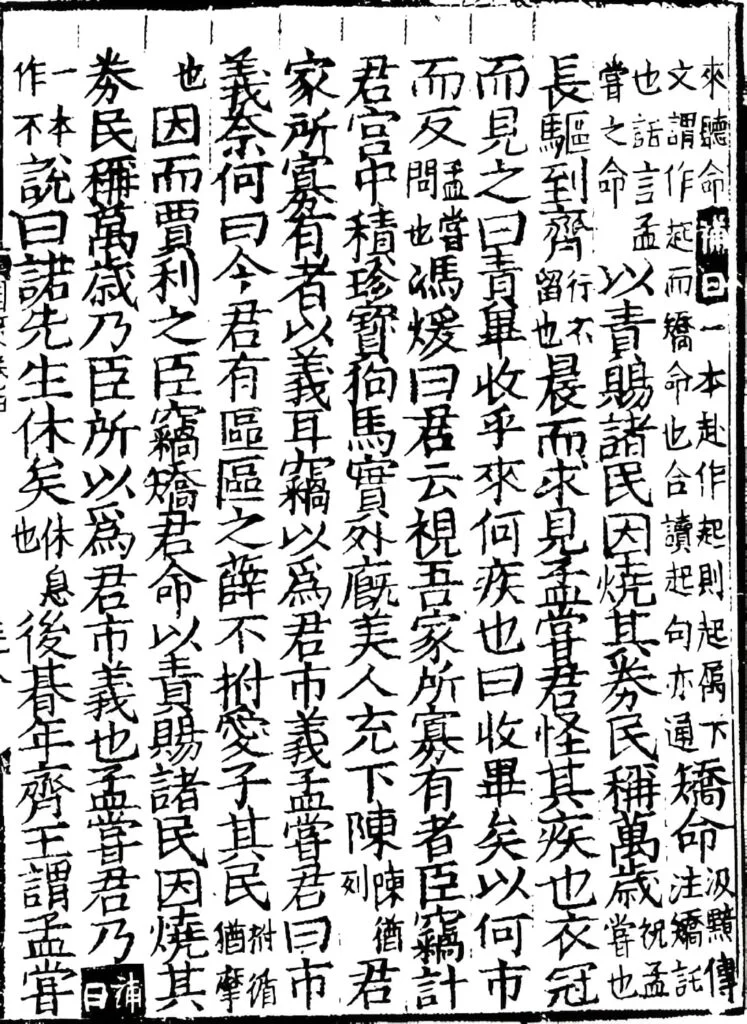 來聽命補曰一本赴作起則起属下文謂作起而矯命也合讀起句亦通矯命汲黯傳注矯託
也話言孟嘗之命以責賜諸民因燒其券民稱萬歲祝孟嘗也
長驅到齊行不留也晨而求見孟嘗君怪其疾也衣冠
而見之曰責畢收乎來何疾也曰收畢矣以何市
而反孟嘗問也馮煖曰君云視吾家所寡有者臣竊計
君宮中積珍寶狗馬實外廐美人充下陳陳猶列君
家所寡有者以義耳竊以爲君市義孟嘗君曰市
義奈何曰今君有區區之薛不拊愛子其民拊循猶摩
也因而賈利之臣竊矯君命以責賜諸民因燒其
券民稱萬歲乃臣所以爲君市義也孟嘗君乃補曰
一本作不說曰諾先生休矣休息也後朞年齊王謂孟嘗